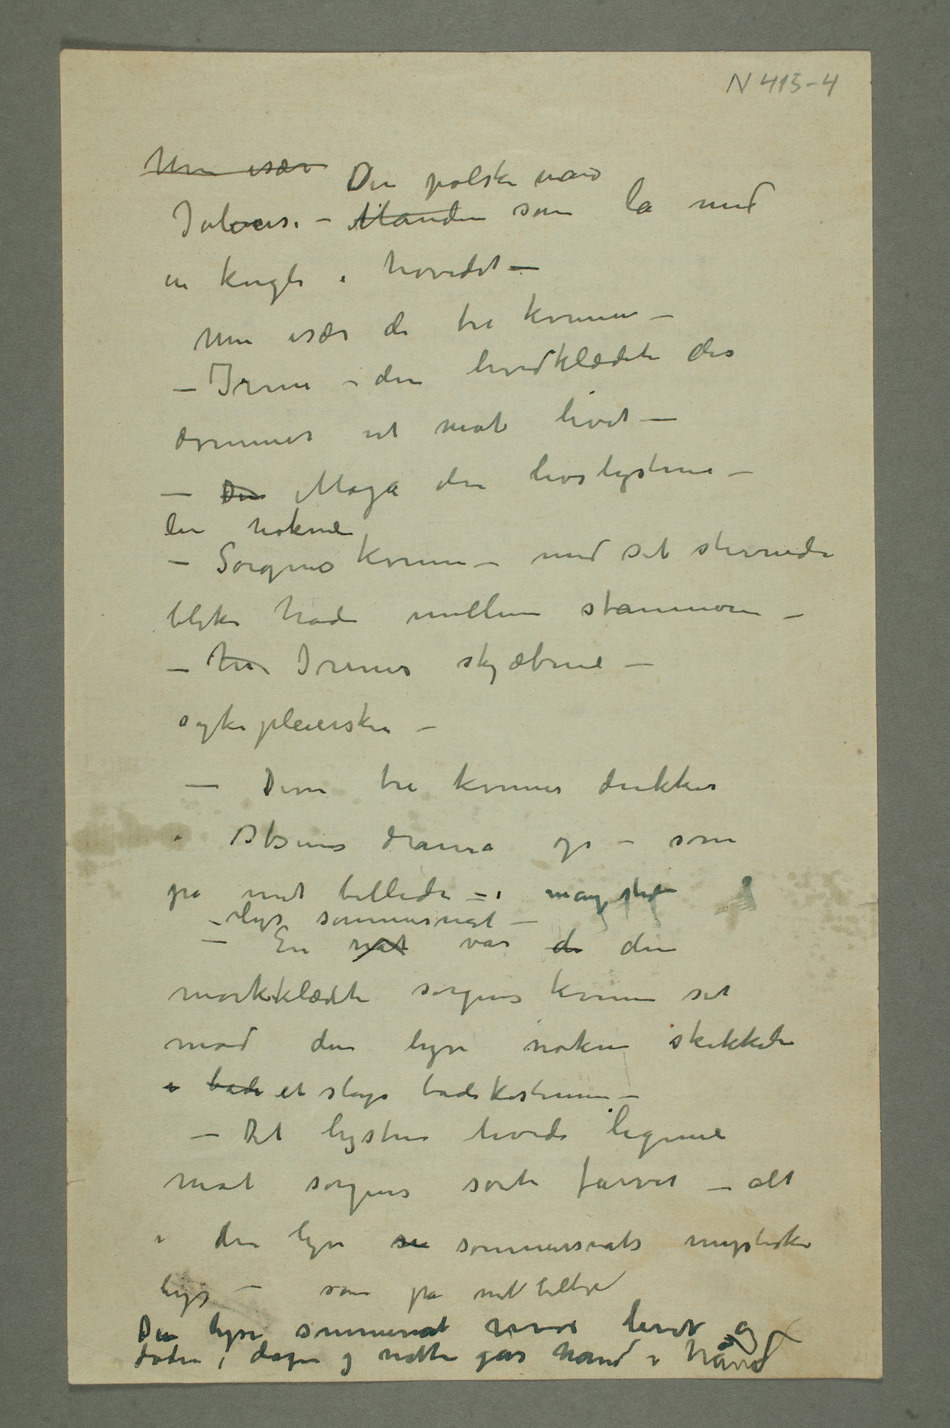 N 415-4
Men især
Den polske mand
Jalousi – Manden som lå med
en kugle i hovedet –
Men især de tre kvinner –
– Irene – den hvidklædete der
drømmer ut mot livet –
– Den Maja den livslystene –
den nøkne
– Sorgens kvinne – med set stirrende
blik hode mellem stammerne –
– hu Irenes skjæbne –
sykepleierske –
– Disse tre kvinner dukker
i Ibsens drama op – som
på mit billede – i mange steder
– lys sommernat –
– En nat var de den
mørkklædte sorgens kvinne set
mod den lyse nøkne skikkelse
i bade et slags badekostume –
– Det lystne hvide legeme
mot sorgens sorte farver – alt
i den lyse se sommernats mystiske
lys – som på mit billed
Den lyse sommernat hvor livet og
døden, dagen og natten går hånd i hånd